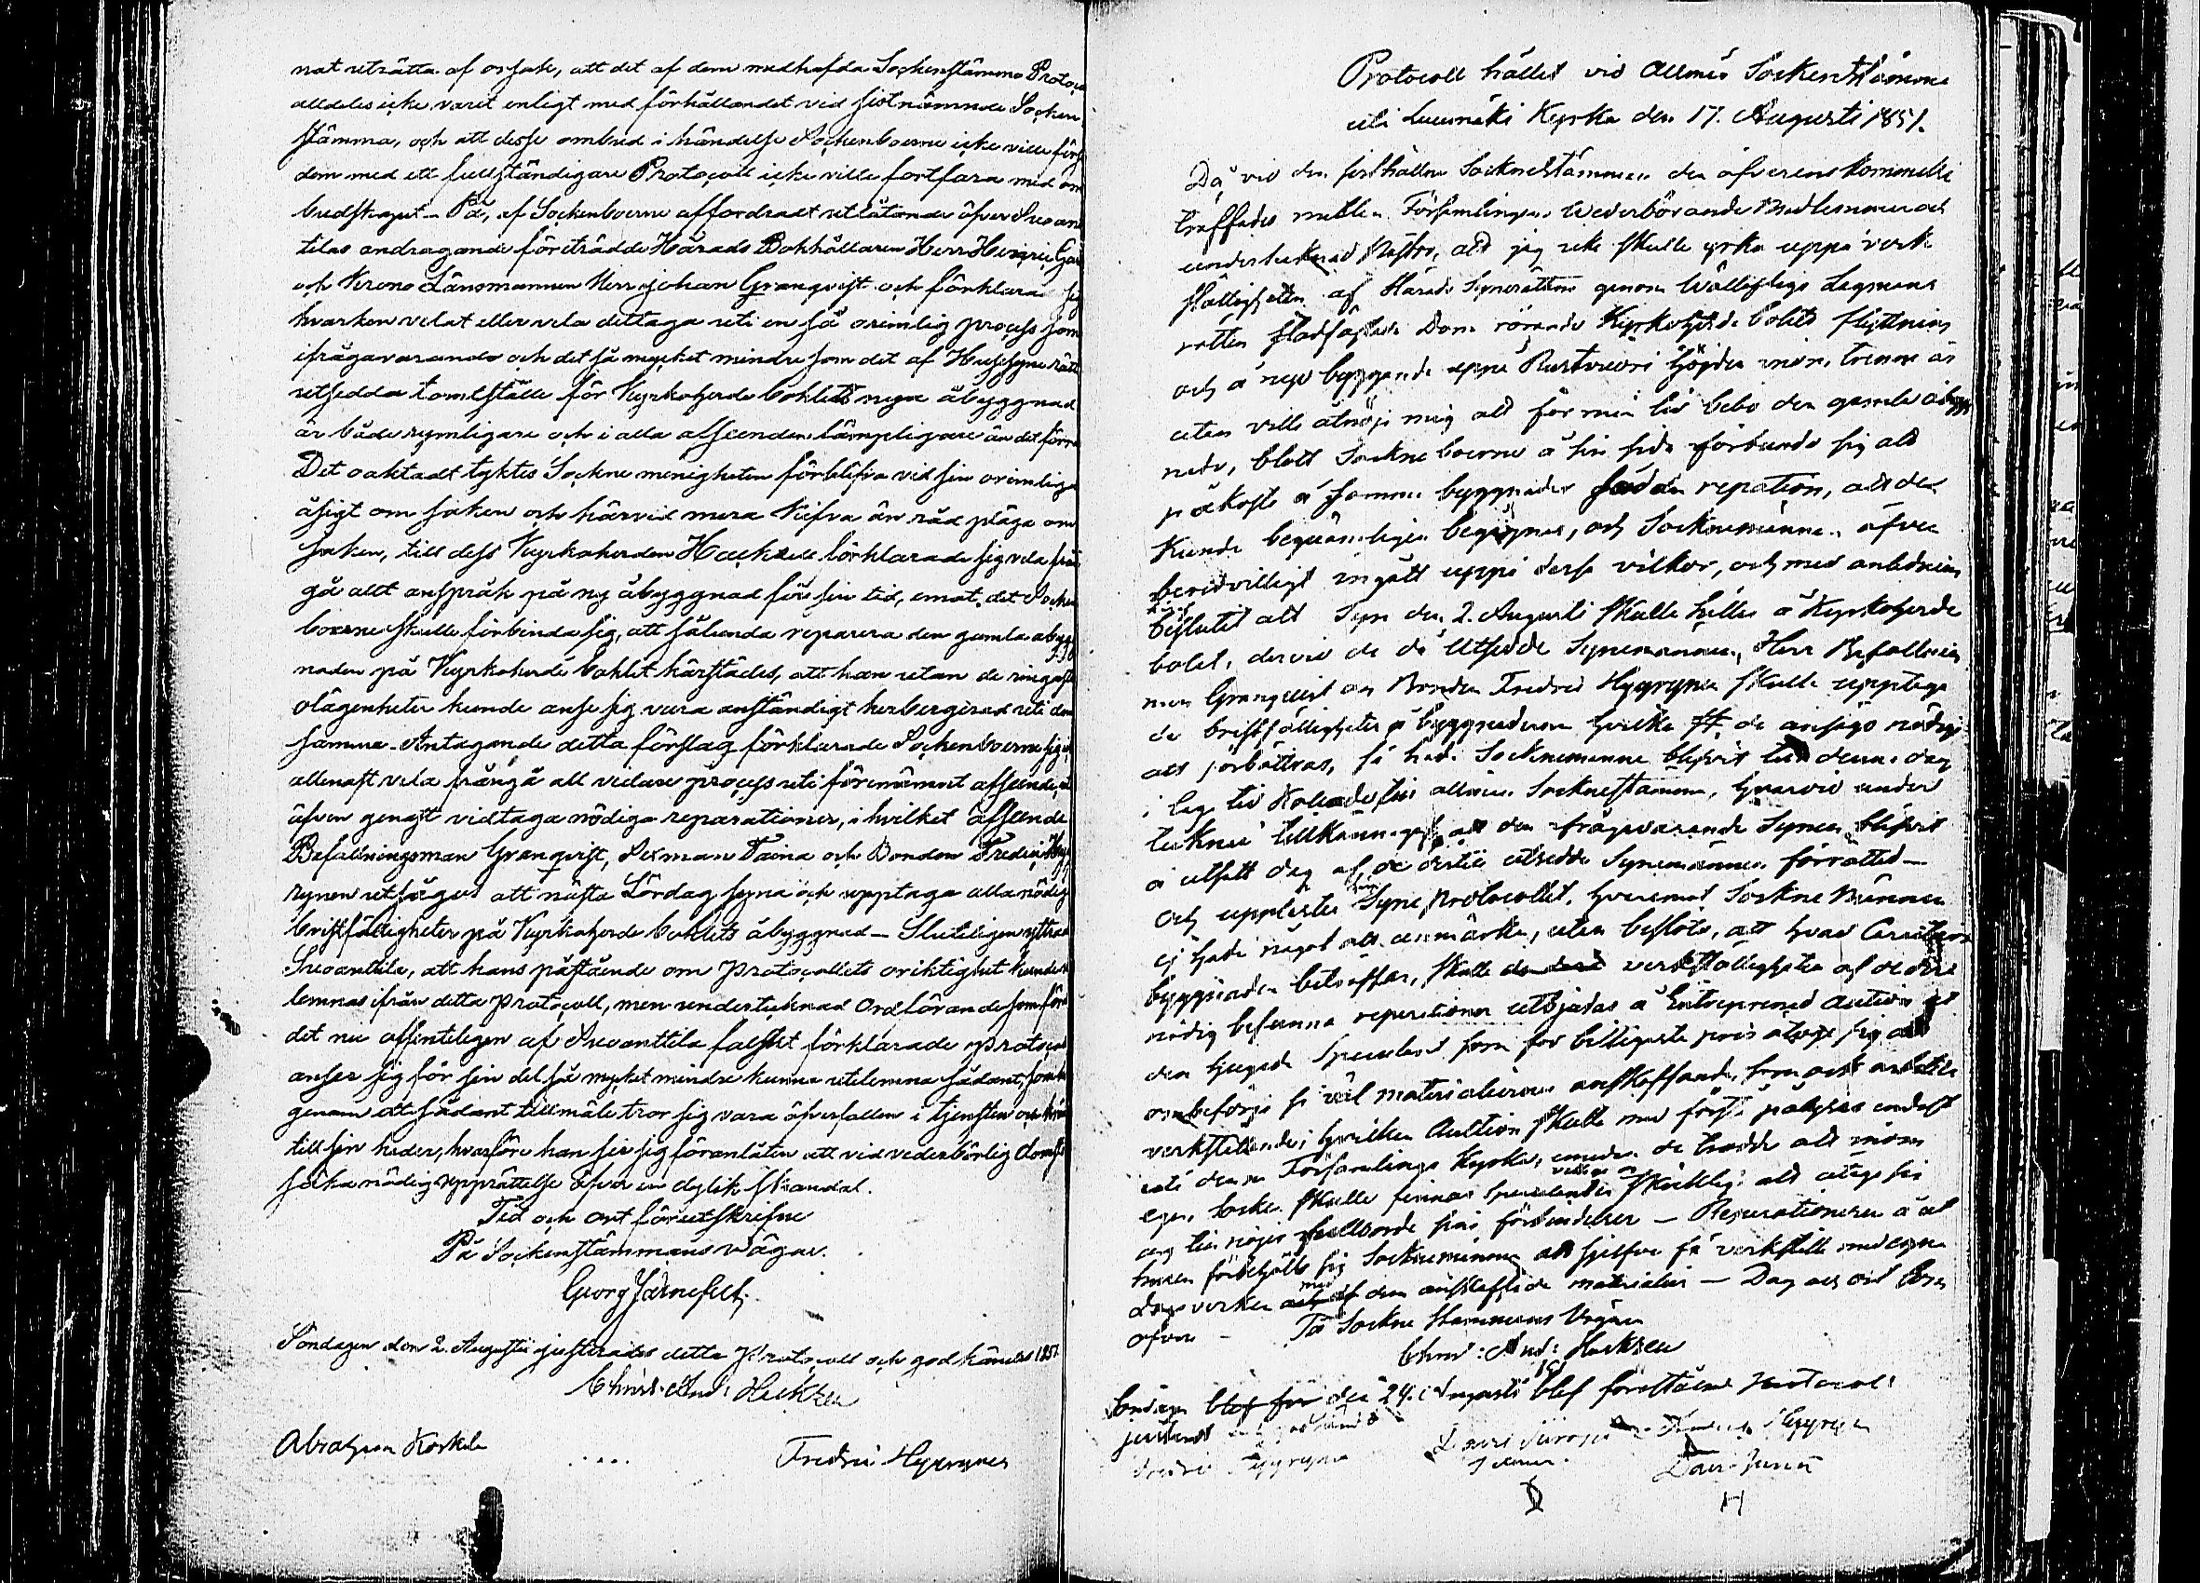 nat uträtta af orsak, att det af dem medhafda Sockenstämmo Protoco
alldeles icke varit enligt med förhållandet vid sistnämnde Socken
stämma, och att desse ombud i händelse Sockenboerne icke ville förse
dem med ett fullständigare Protocoll icke ville fortfara med om
budskapet – På, af Sockenboerne affordradt utlåtande öfver Suoan
tilas andragande företrädde Härads Bokhållaren Herr Henric
och Krono Länsmannen Herr Johan Granqvist och förklara sig
hvarken velat eller vela deltaga uti en så orimlig process som
ifrågavarande och det så mycket mindre som det af Husesyns rätt
utsedda tomtställe för Kyrkoherde bohlets nya åbyggnad
är både rymligare och i alla afseenden lämpligare än det förra
Det oaktadt tyktes Sockne menigheten förblifva vid sin orimliga
åsigt om saken och härvid mera kifva än råd pläga om
saken, till dess Kyrkoherden Hackzell förklarade sig vela från
gå allt anspråk på ny åbyggnad för sin tid, emot det Socken
boerne skulle förbinda sig, att sålunda reparera den gamla åbygg
naden på Kyrkoherde bohlet härstädes, att han utan de ringaste
olägenheter kunde anse sig vara anständigt herbergerad uti den
samma. Antagande detta förslag förklarade Sockenboerne sig ej
allenast vela frångå all vidare process uti förenämnt afseende,
äfven genast vidtaga nödiga reparationer, i hvilket afseende
Befallningsman Granqvist, Sexman Taina och Bonden Fredric Hyy
rynen utsågos att nästa Lördag syna och upptaga alla nödig
bristfälligheter på Kyrkoherde bohlets åbyggnad – Sluteligen yttrade
Suoanttila, att hans påstående om Protocollets oriktighet kunde
lemnas ifrån detta Protocoll, men undertecknad Ordförande som för
det nu offenteligen af Suoanttila falskt förklarade Protocoll
anser sig för sin del så mycket mindre kunna utelemna sådant, som han
genom ett sådant tillmäle tror sig vara öfverfallen i tjensten och
till sin heder, hvarföre han ser sig föranlåten att vid vederbörlig domst
söka nödig upprättelse öfver en dylik skandal.
Tid och ort förutskrefne
På Sockenstämmans vägar.
Georg Järnefelt.
Söndagen den 2. Augusti justerades detta Protocoll och godkändes 1851
Christ: And: Hackzell
Abraham Koskela
Fredric Hyyrynen
Protocoll hållet vid Allmän Sockenstämma
uti Luumäki Kyrka den 17. Augusti 1851.
Då vid den sisthållne Socknestämman den öfverenskommelse
träffades mellan Församlingens Wederbörande Medlemmar och
undertecknad Pastor, att jag icke skulle yrka uppå verk
ställigheten af Härads Synerättens genom Wällofliga Lagmans
rätten stadfästade Dom rörande Kyrkoherde bolets flyttning
och å nyo byggande uppå höjden
utan ville åtnöja mig att för min tid bebo den gamla åbygg
nade, blott Sockneboerne å sin sida förbundo sig att
påkosta å samma byggnader sådan repation, att den
kunde beqvämligen begagnas, och Socknemännen äfven
beredvilligt ingått uppå dessa vilkor, och med anledning
beslutit att Syn den 2. Augusti skulle hållas å Kyrkoherde
bolet, dervid de då utsedde Synemännen, Herr Befallnings
man Granqvist och Bonden Fredric Hyyrynen skulle upptaga
de bristfälligheter å byggnaderne hvilka de ansågo nödiga
att förbättras, så hade Socknemännen blifvit till denne dag
i laga tid kallade till allmän Socknestämma, hvarvid under
tecknad tillkännagaf, att den ifrågavarande Synen blifvit
å utsatt dag af de dertill utsedde Synemännen förrättad –
och upplästes Syne Protocollet, hvaremot Sockne Männen
ej hade något att anmärka, utan beslöto, att hvad
byggnaden beträffar, skulle verkställigheten af de der
nödig befunna reparationer utbjudas å Entreprenad Auction
den hugade Speculant som för billigaste pris åtoge sig att
ombesörja så väl materialiernas anskaffande, som ock arbetets
verkställande; hvilken Auction skulle med första pålysas endast
uti denna Församlings Kyrka, emedan de trodde att inom
egen Socken skulle finnas speculanter skicklige att åtaga sig
och till nöjes fullborda sin förbindelser – Reparationerne å
husen förbehöllo sig Socknemännen att sjelfva få verkställa med egna
dagsverken med den anskaffade materialier – Dag och ort som
ofvan – På Sockne Stämmans Vägnar
Christ: And: Hackzell
Söndagen den 24. Augusti blef förestående Protocoll
justeradt
Fredric Hyyrynen